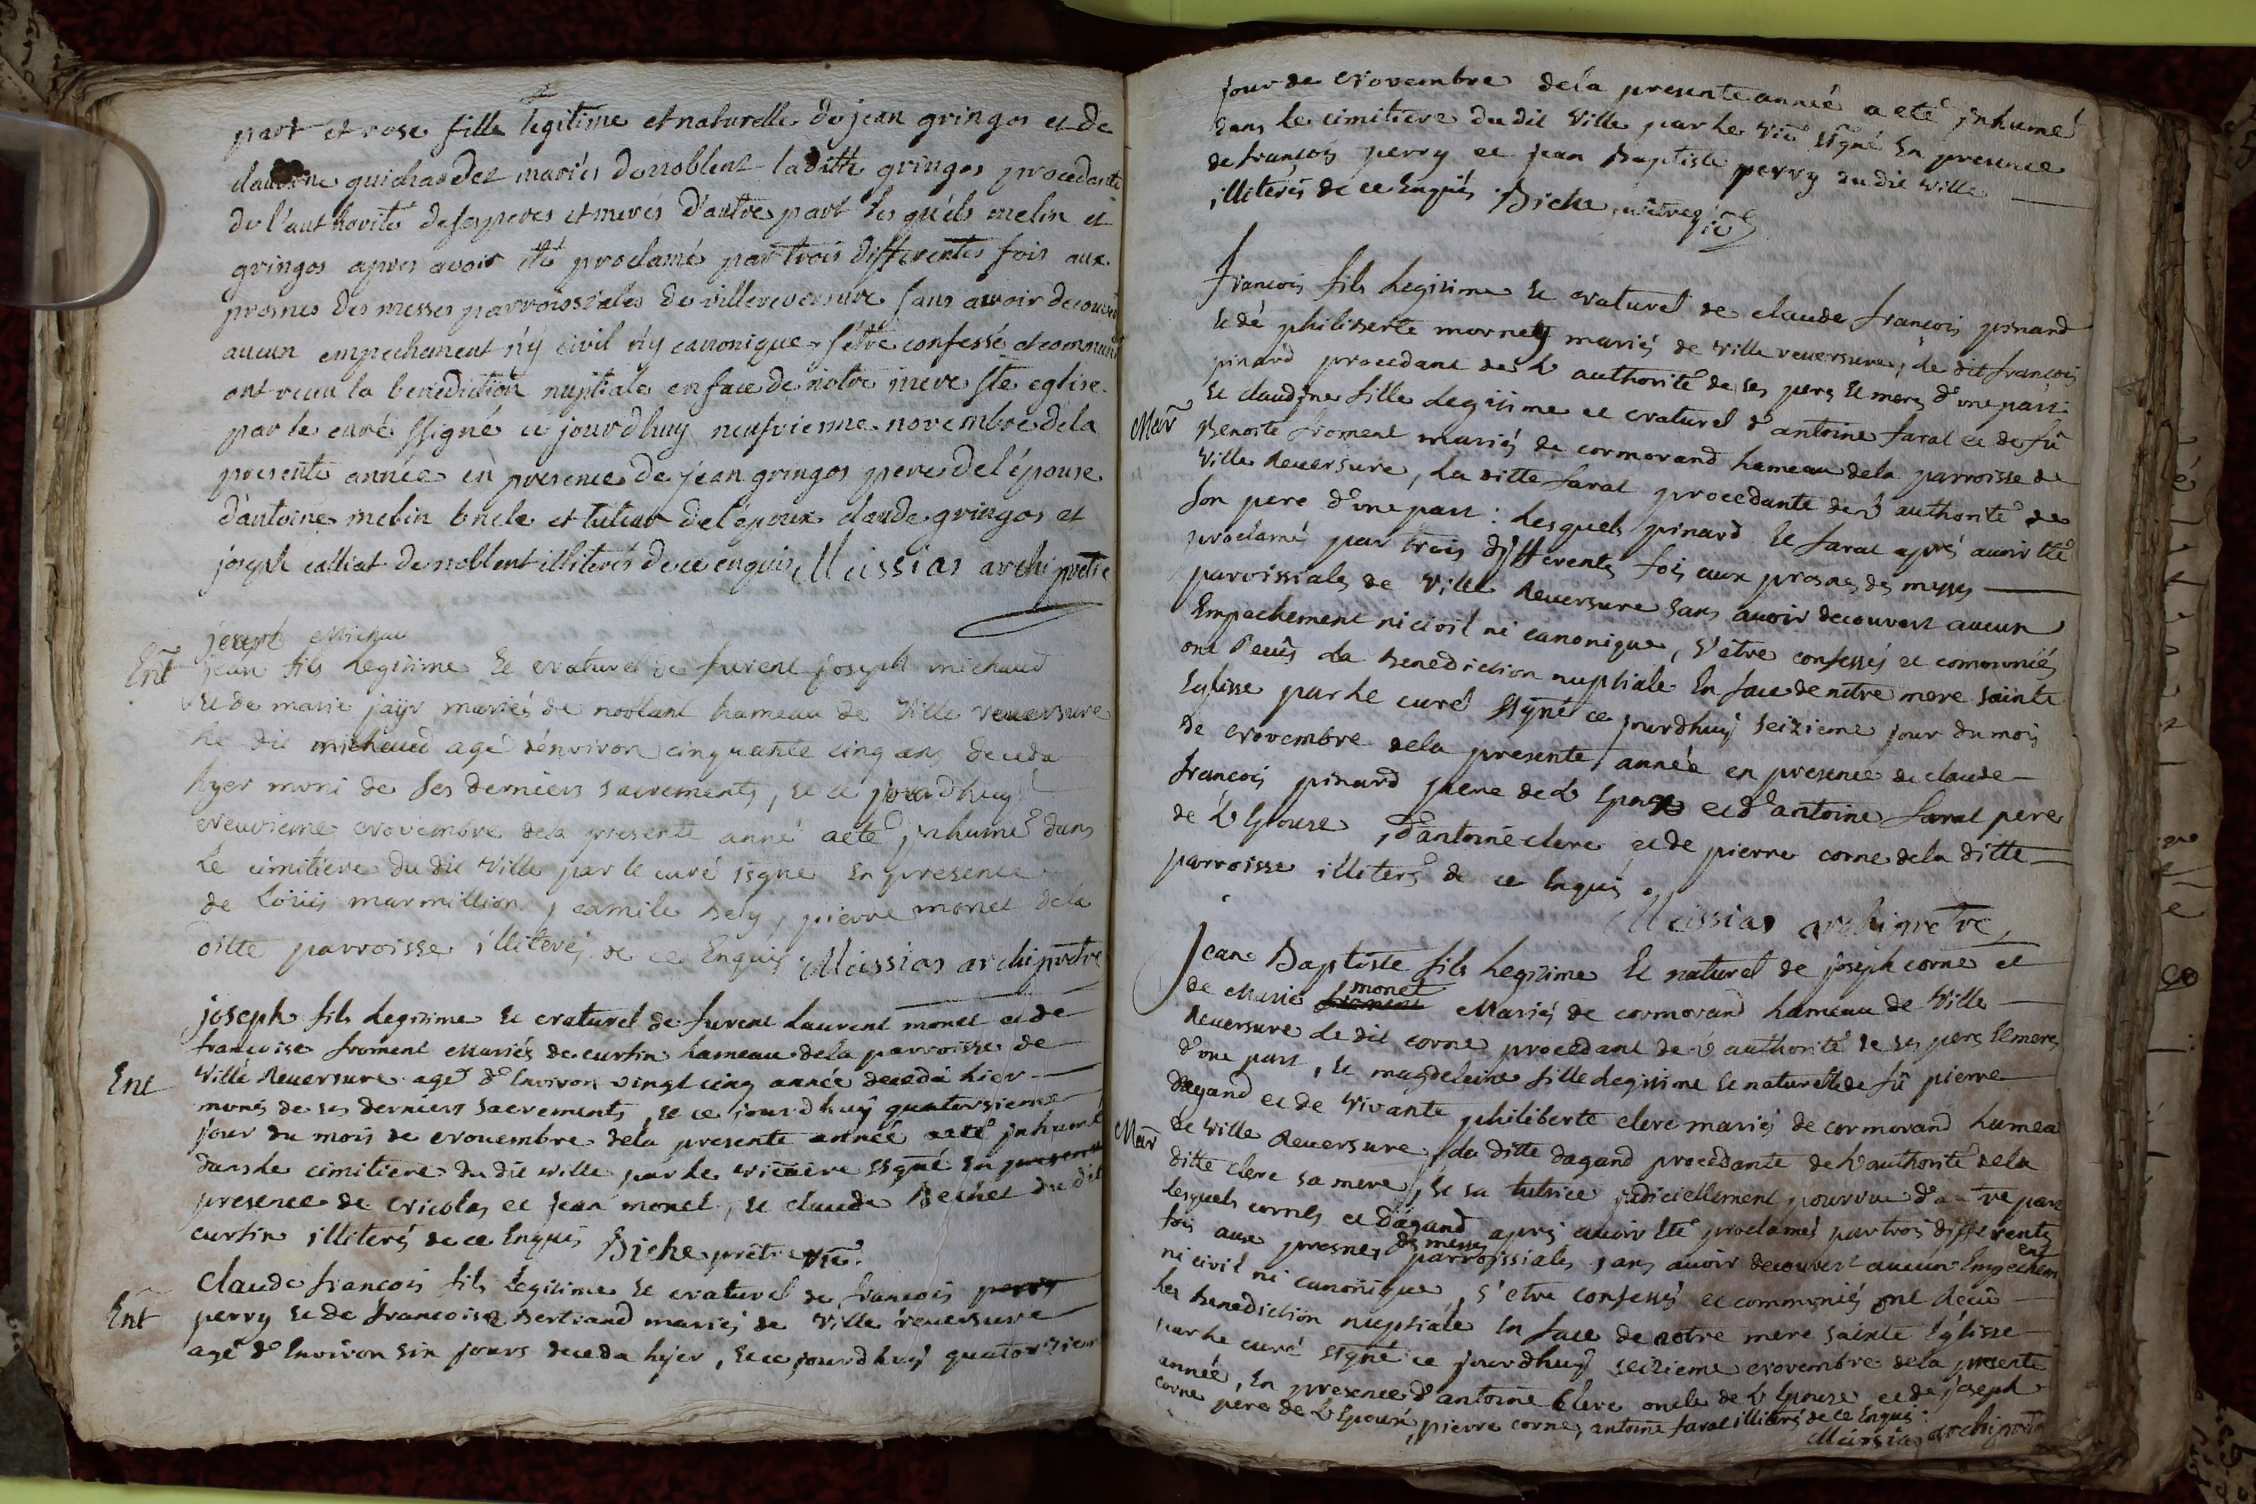 part et rose fille legitime et naturelle de jean gringos et de
claudine guichardet mariés de noblent laditte gringos procedante
de l'authorité de ses peres et meres d'autre part lesquels melin et
gringos apres avoir été proclamé par trois differentes fois aux
prosnes des messes parroissiales de villereversure sans avoir decouvert
aucun empechement n'y civil n'y canonique s'être confessé et communié
ont recu la benediction nuptiale en face de notre mere Ste eglise
par le curé ssigné ce jourdhuy neufvieme novembre de la
presente année en presence de jean gringos pere de l'épouse
d'antoine melin oncle et tuteur de l'epoux claude gringos et
joseph calliat de noblent illiterés de ce enquis Meissias archiprêtre
joseph michau
Ent jean fils legitime et naturel de furent joseph michaud
et de marie jayr mariés de noblant hameau de Ville reversure
le dit michaud agé d'environ cinquante cinq ans deceda
hyer muni de ses derniers sacrements, et ce jourdhuy
neuvieme novembre dela presente anné a eté jnhumé dans
le cimitiere du dit Ville par le curé ssigné En presence
de Loüis marmillion, camile bely, pierre monet dela
ditte parroisse illiterés de ce Enquis Meissias archiprêtre
joseph fils legitime et naturel de furent Laurent monet et de
francoise froment Mariés de curtin hameau dela parroisse de
Ent Ville Reversure agé d'Environ vingt cinq année deceda hier
munis de ses derniers sacrements, et ce jourdhuy quatorsieme
jour du mois de novembre dela presente année a eté jnhumé
dans le cimitiere du dit ville par le vicaire ssigné En presence
presence de Nicolas et jean monet, et claude Bechet du dit
curtin illiterés de ce Enquis Biche prêtre vic.
Claude francois fils Legitime et naturel de francois perry
Ent perry et de francoise Bertrand mariés de Ville reversure
agé d'Environ six jours deceda hyer, et ce jourdhuy quatorzieme
jour de Novembre dela presente année a eté jnhumé
dans le cimitiere du dit Ville par le Vic ssigné En presence
de françois perry et jean Baptiste perry du dit ville
illiterés de ce Enquis Biche prêtre vic
Francois fils Legitime et naturel de claude francois pinard
et de philiberte mornet mariés de Ville reversure, le dit françois
pinard procedant de L'authorité de ses pere et mere d'une part
et claudine fille Legitime et naturel d'antoine faral et de fû
Mar Benoite froment mariés de cormorand hameau dela parroisse de
Ville Reversure, La ditte faral procedante de L'authorité de
son pere d'une part: Lesquels pinard Et faral aprés avoir eté
proclamé par trois differentes fois aux prosnes des messes
parroissiales de Ville Reversure sans avoir decouvert aucun
Empechement ni civil ni canonique, s'être confessés et communiés
ont Reçûs La Benediction nuptiale En face de notre mere sainte
Eglisse par le curé ssigné ce jourdhuy seizieme jour du mois
de Novembre dela presente année en presence de claude
francois pinard pere de L'Epoux et d'antoine faral pere
de L'Epouse, d'antoine clerc et de pierre corne dela ditte
parroisse illiterés de ce Enquis.
Meissias archiprêtre
Jean Baptiste fils Legitime Et naturel de joseph corne et
de Marie froment monet Mariés de cormorand hameau de Ville
Reversure Le dit corne procedant de L'authorité de ses pere Et mere
d'une part, Et magdeleine fille Legitime Et naturelle de fû pierre
dagand et de Vivante philiberte clerc mariés de cormorand hamea
Mar de Ville Reversure, La ditte dagand procedante de L'authorité dela
ditte clerc sa mere, et sa tutrice judiciellement pourvue d'autre part
Lesquels cornes et dagand aprés avoir eté proclamés par trois differentes
fois aux prosnes des messes parroissiales, sans avoir decouvert aucun Empechement
ni civil ni canonique, s'etre confessés et communiés ont Reçû
La Benediction nuptiale En face de notre mere sainte Eglisse
par le curé ssigné ce jourdhuy seizieme novembre dela presente
année, En presence d'antoine clerc oncle de L'Epouse et de joseph
corne pere de L'Epoux, pierre corne, antoine faral illiterés de ce Enquis:
Meissias archiprêtre